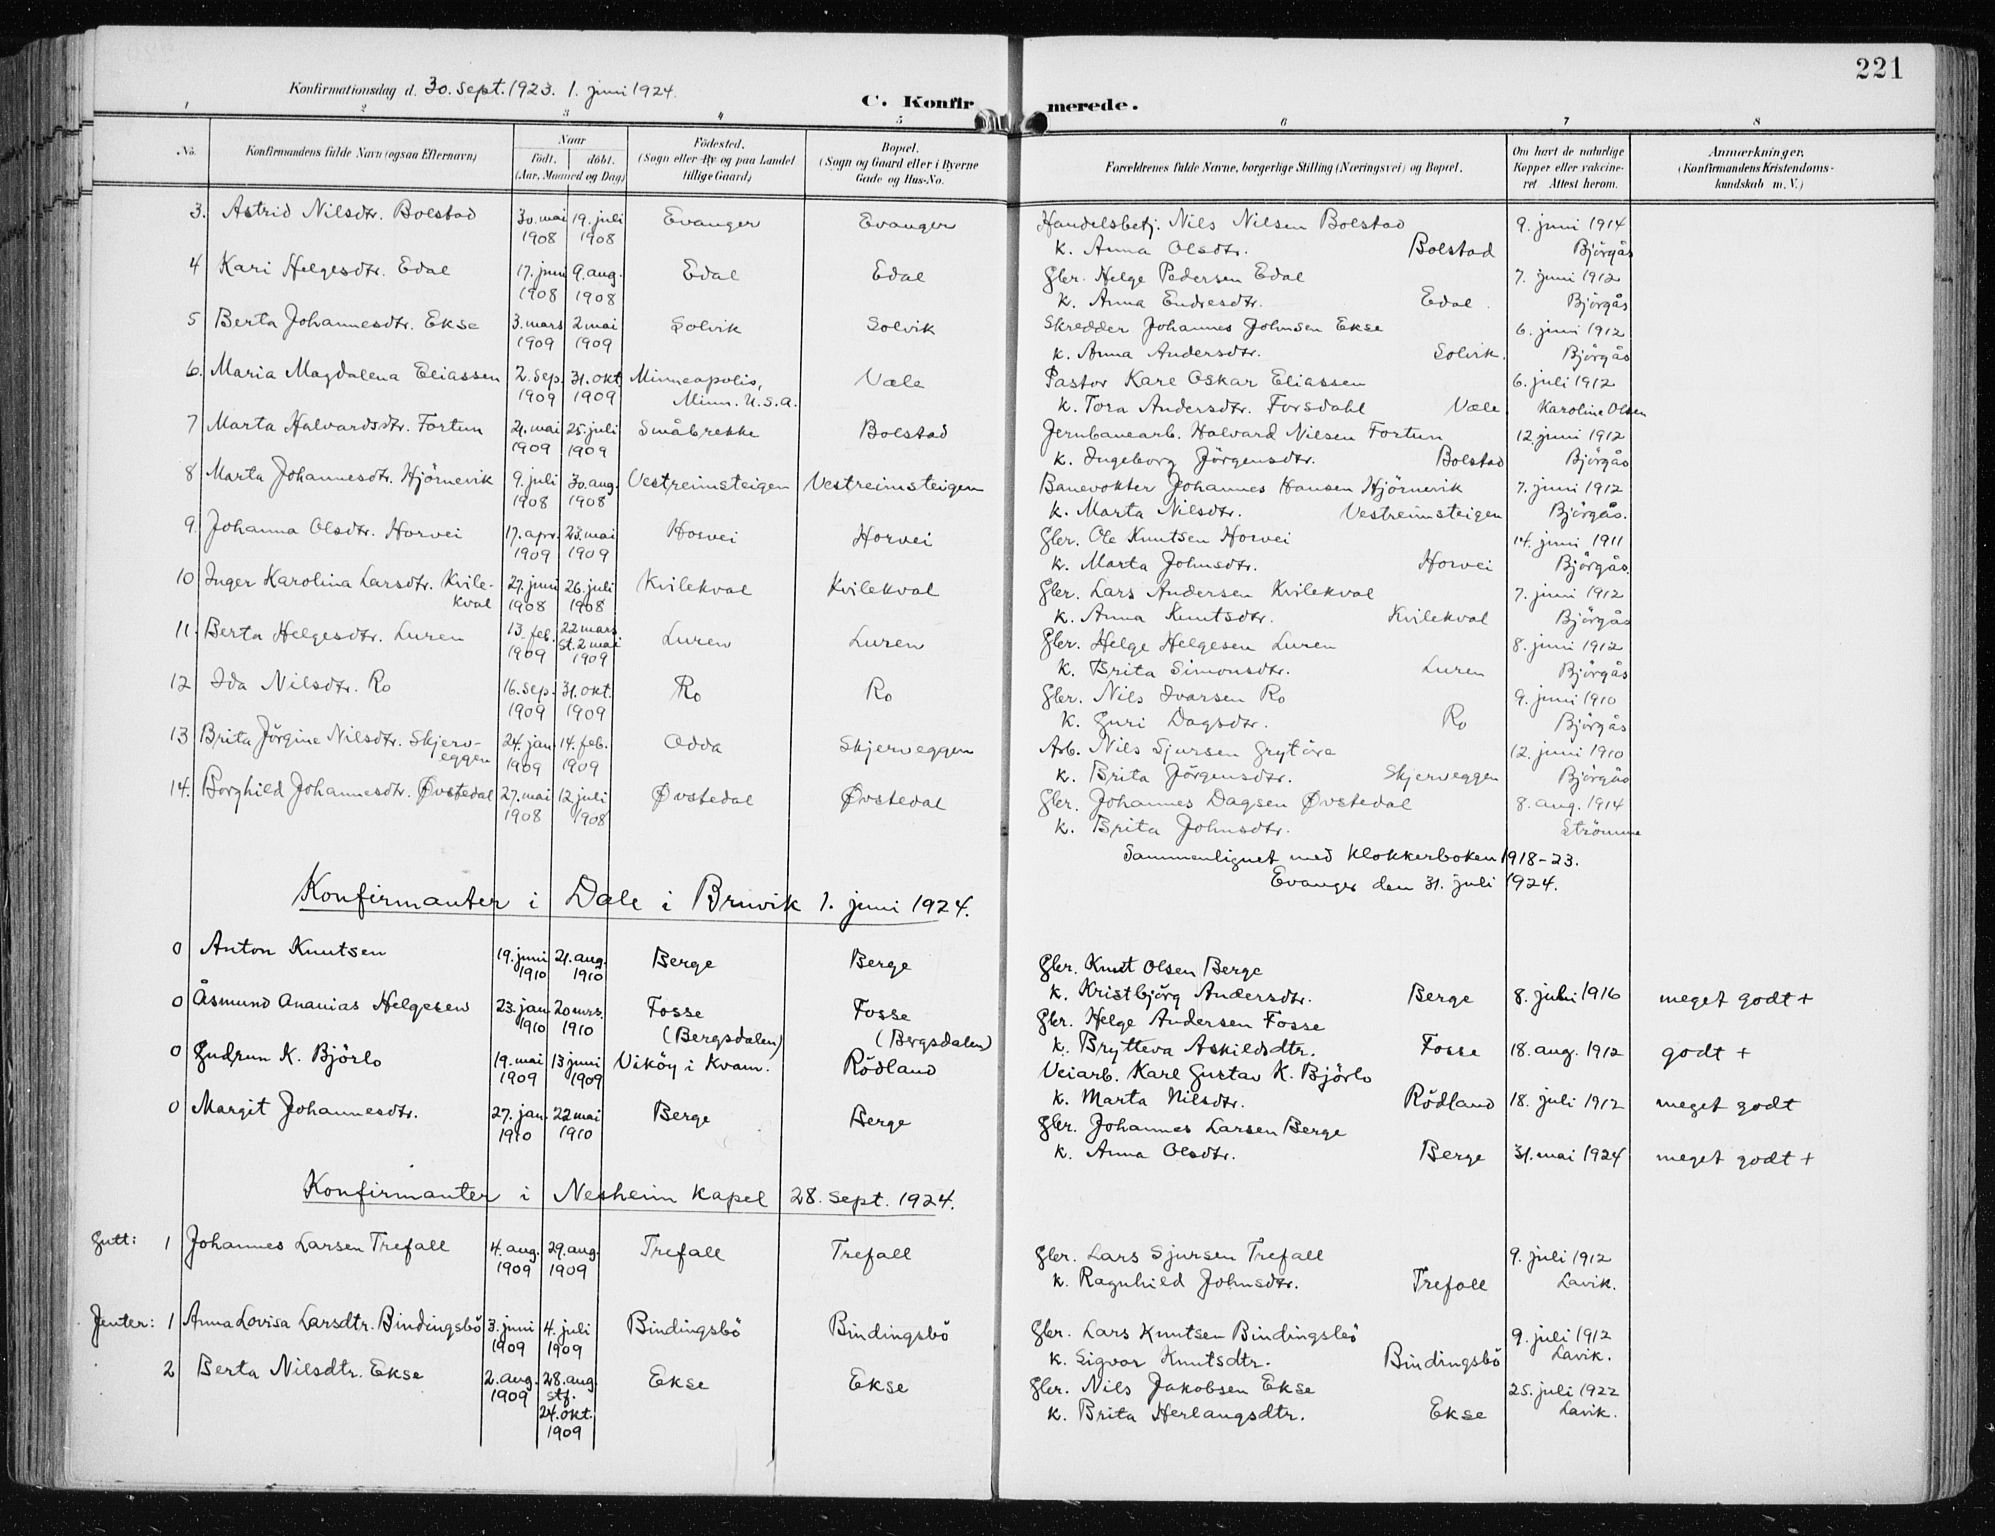 221
Konfirmationsdag d. 30. sept. 1923. 1. juni 1924.
C. Konfirmerede.
1 2 3 4 5 6 7 8
No. Konfirmandens fulde Navn (ogsaa Efternavn) Naar födt. döbt. (Aar, Maaned og Dag) Födested. (Sogn eller By og paa Landet tillige Gaard) Bopæl. (Sogn og Gaard eller i Byerne Gade og Hus-No. Forældrenes fulde Navne, borgerlige Stilling (Næringsvei) og Bopæl. Om havt de naturlige Kopper eller vakcineret. Attest herom. Anmærkninger. (Konfirmandens Kristendomskundskab m. V.)
3. Astrid Nilsdtr. Bolstad 30. mai 1908 19. juli 1908 Evanger Evanger Handelsbetj. Nils Nilsen Bolstad 9. juni 1914
k. Anna Olsdtr. Bolstad Björgås
4 Kari Helgesdtr. Edal 17. juni 1908 9. aug. 1908 Edal Edal Gbr. Helge Pedersen Edal 7. juni 1912
k. Anna Endresdtr. Edal. Björgås
5 Berta Johannesdtr. Ekse 3. mars 1909 2 mai 1909 Solvik Solvik Skredder Johannes Johnsen Ekse 6. juni 1912
k. Anna Andersdtr. Solvik. Björgås
6. Maria Magdalena Eliassen 2. sep. 1909 31. okt 1909 Minneapolis, Minn. U.S.A. Væle Pastor Karl Oskar Eliassen 6. juli 1912
k. Tora Andersdtr. Forsdahl Væle Karoline Olsen
7 Marta Halvardsdtr. Fortun 21. mai 1909 25. juli 1909 Småbrekke Bolstad Jernbanearb. Halvard Nilsen Fortun 12 juni 1912
k. Ingeborg Jörgensdtr. Bolstad Björgås
8 Marta Johannesdtr. Hjörnevik 9. juli 1908 30. aug. 1908 Vestreimsteigen Vestreimsteigen Banevokter Johannes Hansen Hjörnevik 7. juni 1912
k. Marta Nilsdtr. Vestreimsteigen Björgås.
9. Johanna Olsdtr. Horvei 17. apr. 1909 23. mai 1909 Horvei Horvei Gbr. Ole Knutsen Horvei 14. juni 1911
k. Marta Johnsdtr. Horvei Björgås.
10 Inger Karolina Larsdtr. Kvilekval 27. juni 1908 26. juli 1908 Kvilekval Kvilekval Gbr. Lars Andersen Kvilekval 7. juni 1912
k. Anna Knutsdtr. Kvilekval Björgås
11. Berta Helgesdtr. Luren 13. feb. 1909 22 mars st. 2 mai 1909 Luren Luren Gbr. Helge Helgesen Luren 8. juni 1912
k. Brita Simonsdtr. Luren Björgås
12 Ida Nilsdtr. Ro 16. sep. 1909 31. okt. 1909 Ro Ro Gbr. Nils Ivarsen Ro 9. juni 1910
k. Guri Dagsdtr. Ro Björgås
13 Brita Jörgine Nilsdtr. Skjerveggen 24. jan. 1909 14. feb. 1909 Odda Skjerveggen Arb. Nils Sjursen Grytöre 12. juni 1910
k. Brita Jörgensdtr. Skjerveggen Björgås
14. Borghild Johannesdtr. Øvstedal 27. mai 1908 12. juli 1908 Øvstedal Øvstedal Gbr. Johannes Dagsen Øvstedal 8. aug. 1914
k. Brita Johnsdtr. Strömme
Sammenlignet med klokkerboken 1918-23.
Evanger den 31. juli 1924.
Konfirmanter i Dale i Bruvik 1. juni 1924.
0 Anton Knutsen 19. juni 1910 21. aug. 1910 Berge Berge Gbr. Knut Olsen Berge
k. Kristbjörg Andersdtr. Berge 8. juli 1916 meget godt +
0 Åsmund Ananias Helgesen 23. jan. 1910 20 mrs. 1910 Fosse (Bergsdalen) Fosse (Bergsdalen) Gbr. Helge Andersen Fosse
k. Brytteva Askildsdtr. Fosse 18. aug. 1912 godt +
0 Gudrun K. Björlo 19. mai 1909 13 juni 1909 Viköy i Kvam. Rödland Veiarb. Karl Gustav K. Björlo
k. Marta Nilsdtr. Rödland 18. juli 1912 meget godt
0 Margit Johannesdtr. 27. jan. 1910 22 mai 1910 Berge Berge Gbr. Johannes Larsen Berge
k. Anna Olsdtr. Berge 31. mai 1924 meget godt +
Konfirmanter i Nesheim kapel 28. sept. 1924.
Gutt: 1 Johannes Larsen Trefall 4. aug. 1909 29. aug. 1909 Trefall Trefall Gbr. Lars Sjursen Trefall 9. juli 1912
k. Ragnhild Johnsdtr. Trefall Lavik.
Jenter: 1 Anna Lovisa Larsdtr. Bindingsbö 3. juni 1909 4. juli 1909 Bindingsbö Bindingsbö Gbr. Lars Knutsen Bindingsbö 9. juli 1912
k. Sigvor Knutsdtr. Bindingsbö Lavik.
2 Berta Nilsdtr. Ekse 2. aug. 1909 28. aug. stf. 24. okt. 1909 Ekse Ekse Gbr. Nils Jakobsen Ekse 25. juli 1922
k. Brita Herlaugsdtr. Ekse Lavik.